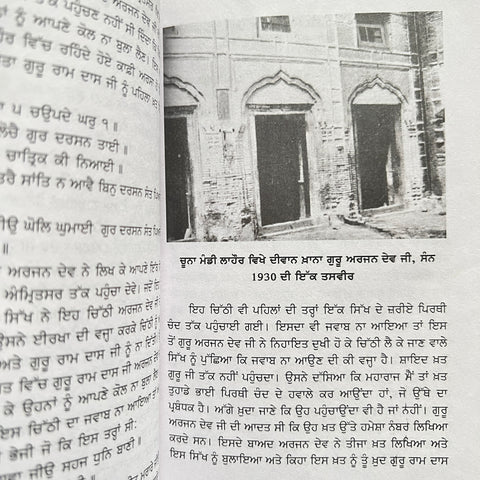 ਪਹੁੰਚਣ ਨਹੀਂ ਸੀ ਦਿੰਦਾ
ਨੂੰ ਆਪਣੇ ਕੋਲ ਨਾ ਬੁਲਾ ਲੈਣ।
ਵਿੱਚ ਰਹਿੰਦੇ ਹੋਏ ਕਾਫ਼ੀ
ਗੁਰੂ ਰਾਮ ਦਾਸ ਜੀ ਨੂੰ ਪਹਿਲਾ
੫ ਚਉਪਦੇ ਘਰੁ ੧ ॥
ਲੋਚੈ ਗੁਰ ਦਰਸਨ ਤਾਈ ॥
ਚਾਤ੍ਰਿਕ ਕੀ ਨਿਆਈ ॥
ਸਾਂਤਿ ਨ ਆਵੈ ਬਿਨੁ ਦਰਸਨ ਸੰਤ
ਜੀਉ ਘੋਲਿ ਘੁਮਾਈ ਗੁਰ ਦਰਸਨ ਸੰਤ
ਅਰਜਨ ਦੇਵ ਨੇ ਲਿਖ ਕੇ ਆਪਣੇ ਇੱਕ
ਅੰਮ੍ਰਿਤਸਰ ਤੱਕ ਪਹੁੰਚਾ ਦੇਵੇ। ਜਦੋਂ
ਸਿੱਖ ਨੇ ਇਹ ਚਿੱਠੀ ਅਰਜਨ ਦੇਵ
ਉਸਨੇ ਈਰਖਾ ਦੀ ਵਜ੍ਹਾ ਕਰਕੇ ਚਿੱਠੀ
ਅਤੇ ਗੁਰੂ ਰਾਮ ਦਾਸ ਜੀ ਨੂੰ ਨਾ ਦਿੱਤੀ
ਵਿੱਚ ਗੁਰੂ ਰਾਮ ਦਾਸ ਜੀ ਅਰਜਨ
ਕੇ ਉਹਨਾਂ ਨੂੰ ਆਪਣੇ ਕੋਲ ਨਾ ਬੁਲਾ
ਇਸ ਚਿੱਠੀ ਦਾ ਜਵਾਬ ਨਾ ਆਇਆ ਤਾਂ
ਭੇਜੀ ਜੋ ਕਿ ਇਸ ਤਰ੍ਹਾਂ ਸੀ:
ਜੀਉ ਸਹਜ ਧੁਨਿ ਬਾਣੀ ॥
ਚੂਨਾ ਮੰਡੀ ਲਾਹੌਰ ਵਿਖੇ ਦੀਵਾਨ ਖ਼ਾਨਾ ਗੁਰੂ ਅਰਜਨ ਦੇਵ ਜੀ, ਸੰਨ
1930 ਦੀ ਇੱਕ ਤਸਵੀਰ
ਇਹ ਚਿੱਠੀ ਵੀ ਪਹਿਲਾਂ ਦੀ ਤਰ੍ਹਾਂ ਇੱਕ ਸਿੱਖ ਦੇ ਜ਼ਰੀਏ ਪਿਰਥੀ
ਚੰਦ ਤੱਕ ਪਹੁੰਚਾਈ ਗਈ। ਇਸਦਾ ਵੀ ਜਵਾਬ ਨਾ ਆਇਆ ਤਾਂ ਇਸ
ਤੋਂ ਗੁਰੂ ਅਰਜਨ ਦੇਵ ਜੀ ਨੇ ਨਿਹਾਇਤ ਦੁਖੀ ਹੋ ਕੇ ਚਿੱਠੀ ਲੈ ਕੇ ਜਾਣ ਵਾਲੇ
ਸਿੱਖ ਨੂੰ ਪੁੱਛਿਆ ਕਿ ਜਵਾਬ ਨਾ ਆਉਣ ਦੀ ਕੀ ਵਜ੍ਹਾ ਹੈ। ਸ਼ਾਇਦ ਖ਼ਤ
ਗੁਰੂ ਜੀ ਤੱਕ ਨਹੀਂ ਪਹੁੰਚਦਾ। ਉਸਨੇ ਦੱਸਿਆ ਕਿ ਮਹਾਰਾਜ ਮੈਂ ਤਾਂ ਖ਼ਤ
ਤੁਹਾਡੇ ਭਾਈ ਪਿਰਥੀ ਚੰਦ ਦੇ ਹਵਾਲੇ ਕਰ ਆਉਂਦਾ ਹਾਂ, ਜੋ ਉੱਥੇ ਦਾ
ਪ੍ਰਬੰਧਕ ਹੈ। ਅੱਗੇ ਖ਼ੁਦਾ ਜਾਣੇ ਕਿ ਉਹ ਪਹੁੰਚਾਉਂਦਾ ਵੀ ਹੈ ਜਾਂ ਨਹੀਂ। ਗੁਰੂ
ਅਰਜਨ ਦੇਵ ਜੀ ਦੀ ਆਦਤ ਸੀ ਕਿ ਉਹ ਖ਼ਤ ਉੱਤੇ ਹਮੇਸ਼ਾ ਨੰਬਰ ਲਿਖਿਆ
ਕਰਦੇ ਸਨ। ਇਸਦੇ ਬਾਅਦ ਅਰਜਨ ਦੇਵ ਨੇ ਤੀਜਾ ਖ਼ਤ ਲਿਖਿਆ ਅਤੇ
ਇਸ ਸਿੱਖ ਨੂੰ ਬੁਲਾਇਆ ਅਤੇ ਕਿਹਾ ਇਸ ਖ਼ਤ ਨੂੰ ਤੂੰ ਖ਼ੁਦ ਗੁਰੂ ਰਾਮ ਦਾਸ